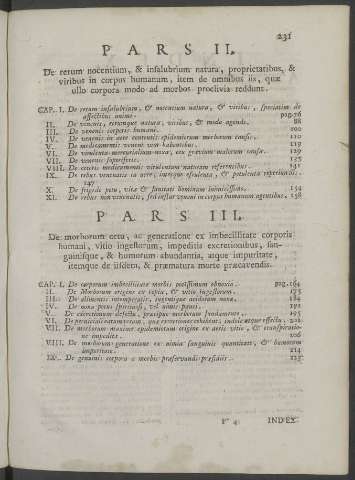 231
PARS II.
De rerum nocentium, & insalubrium natura, proprietatibus, &
viribus in corpus humanum, item de omnibus iis, quæ
ullo corpora modo ad morbos proclivia reddunt.
CAP. I. De rerum insalubrium, & nocentium natura, & viribus, speciatim de
affectibus animi. pag. 76
II. De venenis, eorumque natura, viribus, & modo agendi. 88
III. De venenis corporis humani. 100
IV. De venenis in aere contentis epidemicorum morborum causis. 110
V. De medicamentis veneni vim habentibus. 119
VI. De virulentia mercurialium noxa, ceu gravium malorum causa. 129
VII. De venenis superstitis. 135
VIII. De ceteris medicamentis virulentam naturam referentibus. 141
IX. De rebus venenatis in aere, interque esculenta, & potulenta repertiundis.
147
X. De frigido potu, vitæ & sanitati hominum inimicissimo. 154
XI. De rebus non venenatis, sed instar veneni in corpus humanum agentibus. 158
PARS III.
De morborum ortu, ac generatione ex imbecillitate corporis
humani, vitio ingestorum, impeditis excretionibus, san-
guinisque, & humorum abundantia, atque impuritate,
itemque de iisdem, & præmatura morte præcavendis.
CAP. I. De corporum imbecillitate morbis potissimum obnoxia. pag. 164
II. De Morborum origine ex copia, & vitio ingestorum. 175
III. De alimentis intemperatis, interque acidorum noxa. 184
IV. De noxa potus spirituosi, vel nimis parci. 192
V. De excretionum defectu, præcipuo morborum fundamento. 195
VI. De perniciali intumescentium, quæ excretiones exhibent, indole atque effectu. 202
VII. De morborum maxime epidemicorum origine ex aeris vitio, & transpiratio-
ne impedita. 206
VIII. De morborum generatione ex nimia sanguinis quantitate, & humorum
impuritate. 214
IX. De genuinis corporis a morbis præservandi præsidiis. 225
P 4 INDEX